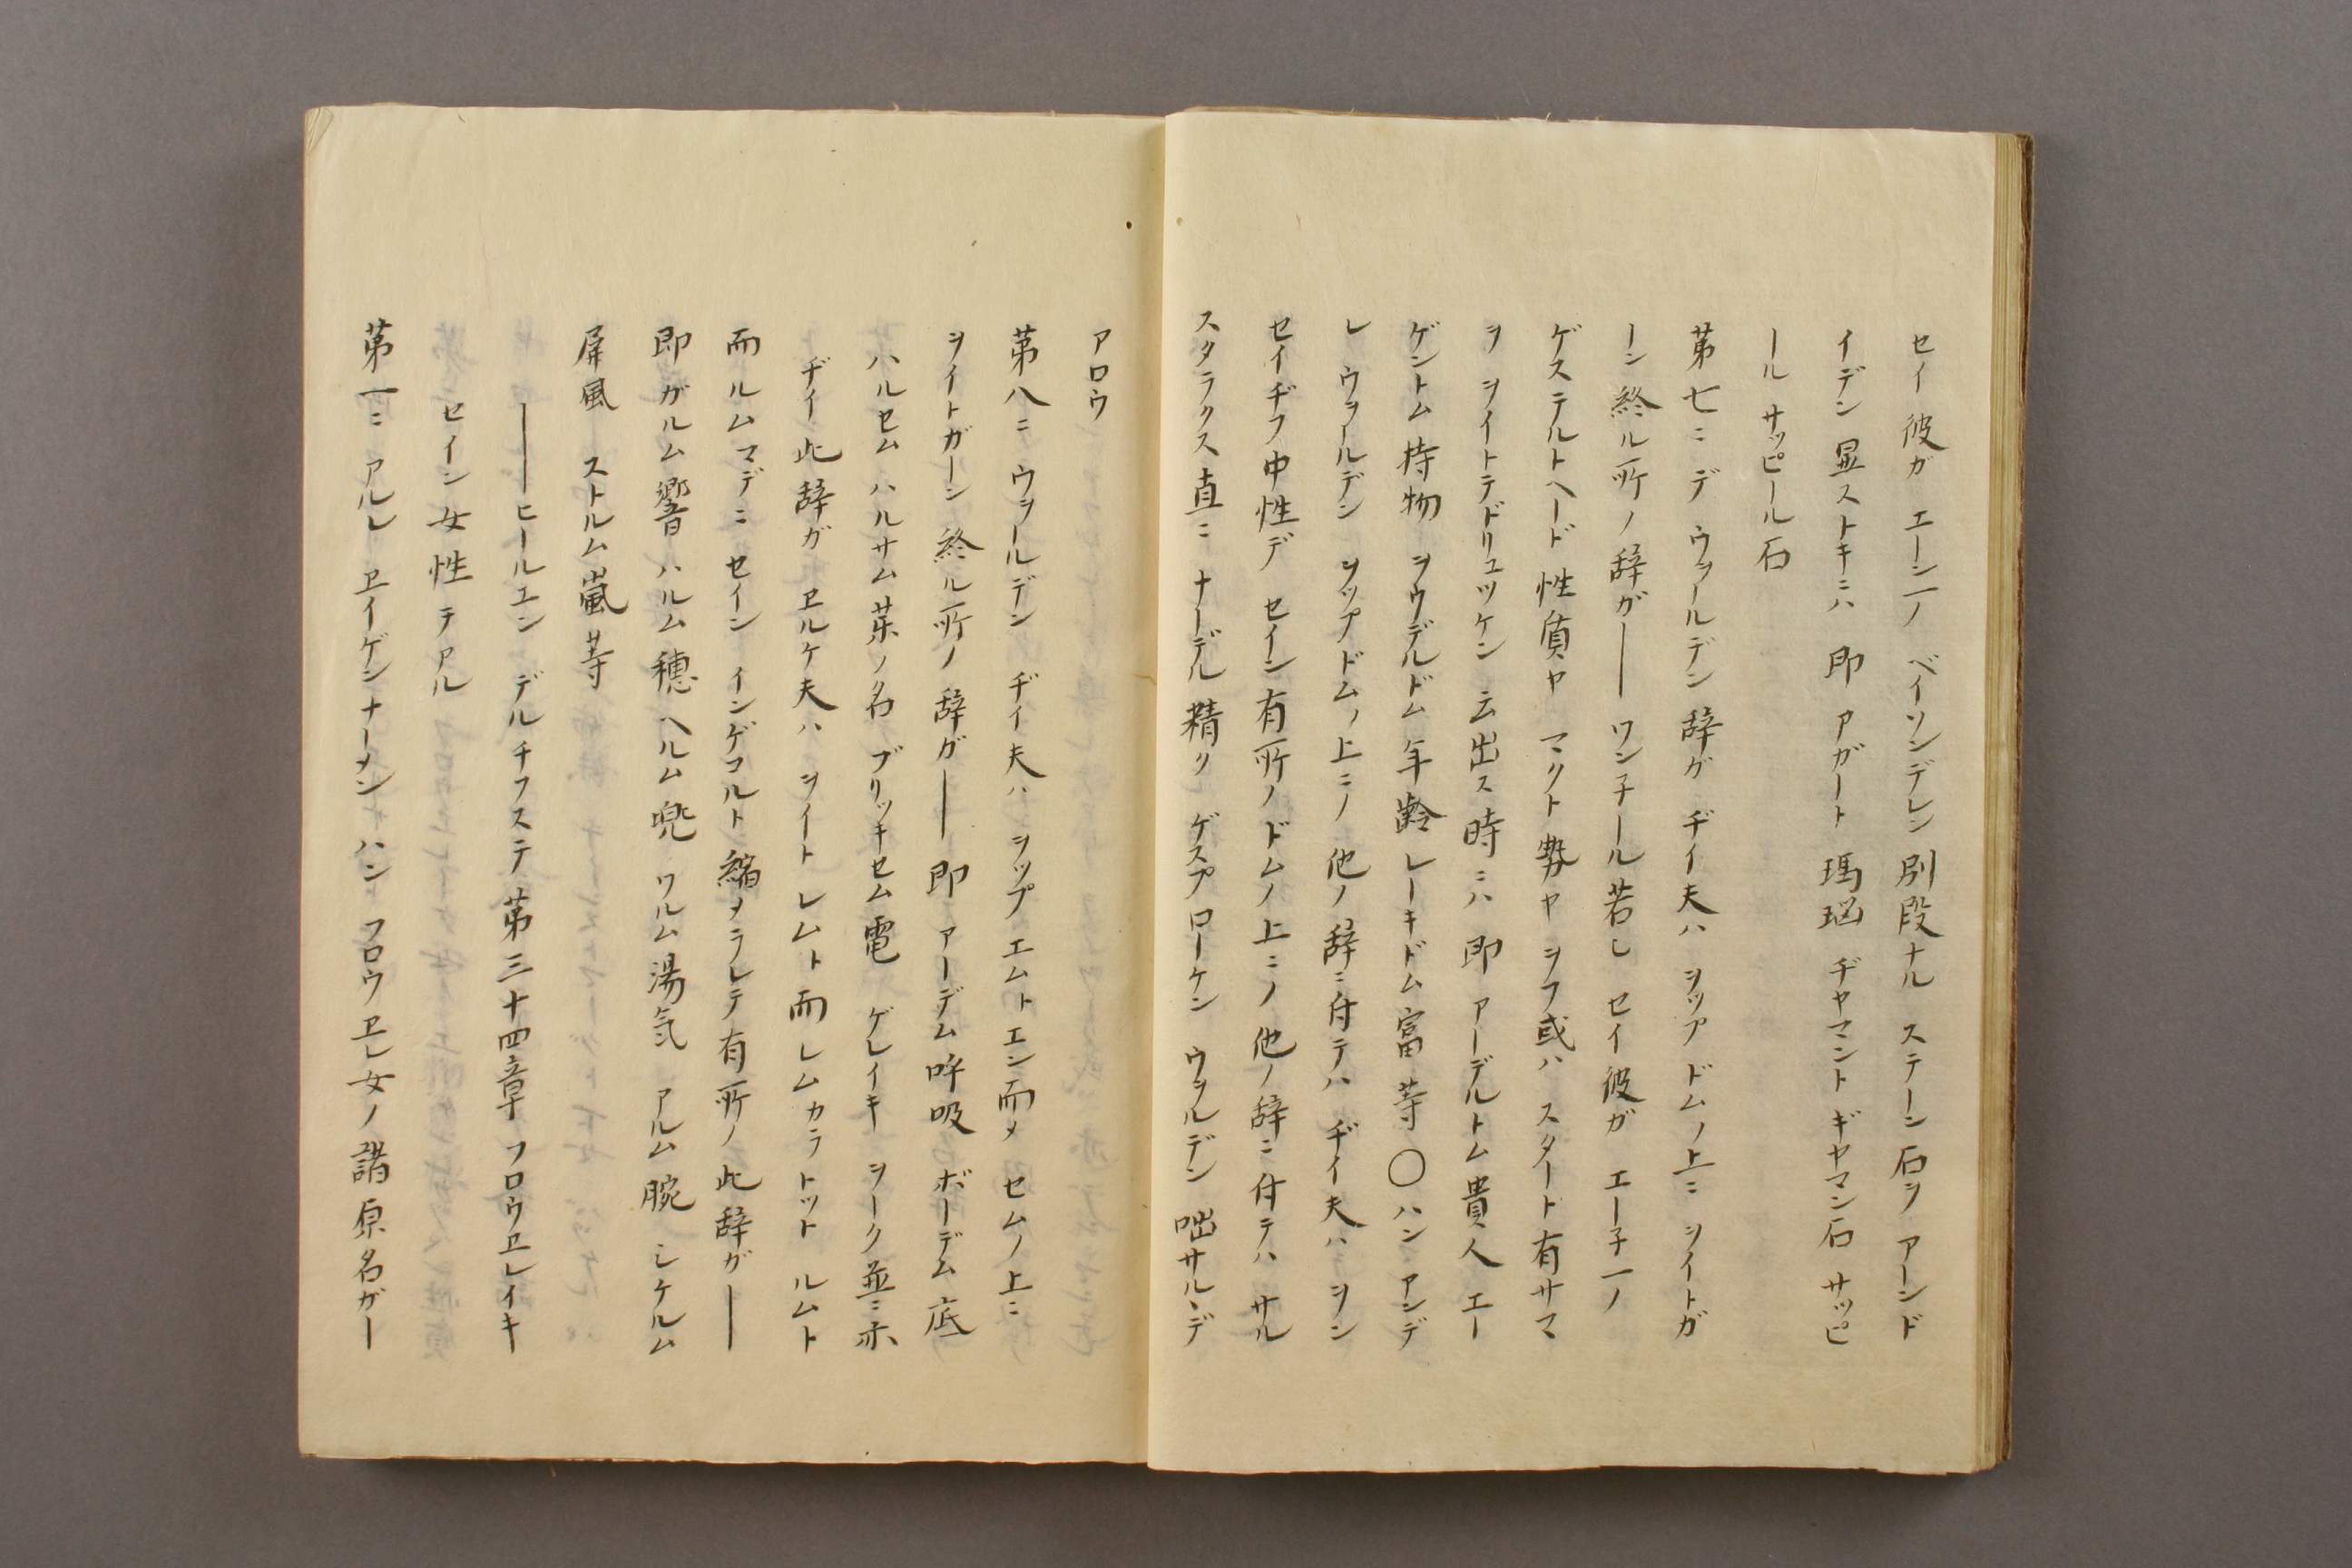 セイ彼ガ エーン一ノ ベイソンデレン別段ナル ステーン石ヲ アーンド
イデン显ストキニハ 即 アガート 瑪瑙 ヂヤマント ギヤマン石 サッピ
ール サッピール石
第七ニ デ ウヲールデン 辞ガ ヂイ夫ハ ヲップ ドムノ上ニ ヲイトガ
ーン 終ル所ノ辞ガ―― ワンチール若シ セイ彼ガ エー子一ノ
ゲステルトヘード 性質ヤ マクト勢ヤ ヲフ或ハ スタート有サマ
ヲ ヲイトテドリュツケン 云出ス時ニハ 即 アーデルトム貴人 エー
ゲントム 持物 ヲウデルドム 年齢 レーキドム富 等 〇ハン アンデ
レ ウヲールデン ヲップ ドムノ上ニノ 他ノ辞ニ付テハ ヂイ夫ハ ヲン
セイヂフ中性デ セイン有所ノ ドムノ上ニノ 他ノ辞ニ付テハ サル
スタラクス直ニ ナーデル精ク ゲスプローケン ウヲルデン 咄サルヽデ
アロウ
第八ニ ウヲールデン ヂイ夫ハ ヲップ エムト エン而メ セムノ上ニ
ヲイトガーン 終ル所ノ 辞ガ―― 即 アーデム呼吸 ボーデム底
ハルセム ハルサム茱ノ名 ブリッキセム電 ゲレイキ ヲーク並ニ亦
ヂイ此辞ガ ヱルケ夫ハ ヲイト レムト而 レムカラ トット ルムト
而ルムマデニ セイン インゲコルト縮メラレテ有所ノ此辞ガ――
即 ガルム響 ハルム穂 ヘルム兜 ワルム湯気 アルム腕 シケルム
屏風 ストルム嵐等
――ヒールエン デルチフステ 第三十四章 フロウヱレイキ
セイン女性テアル
第一ニ アルレ ヱイゲンナーメン ハン フロウヱレ女ノ諸原名ガー